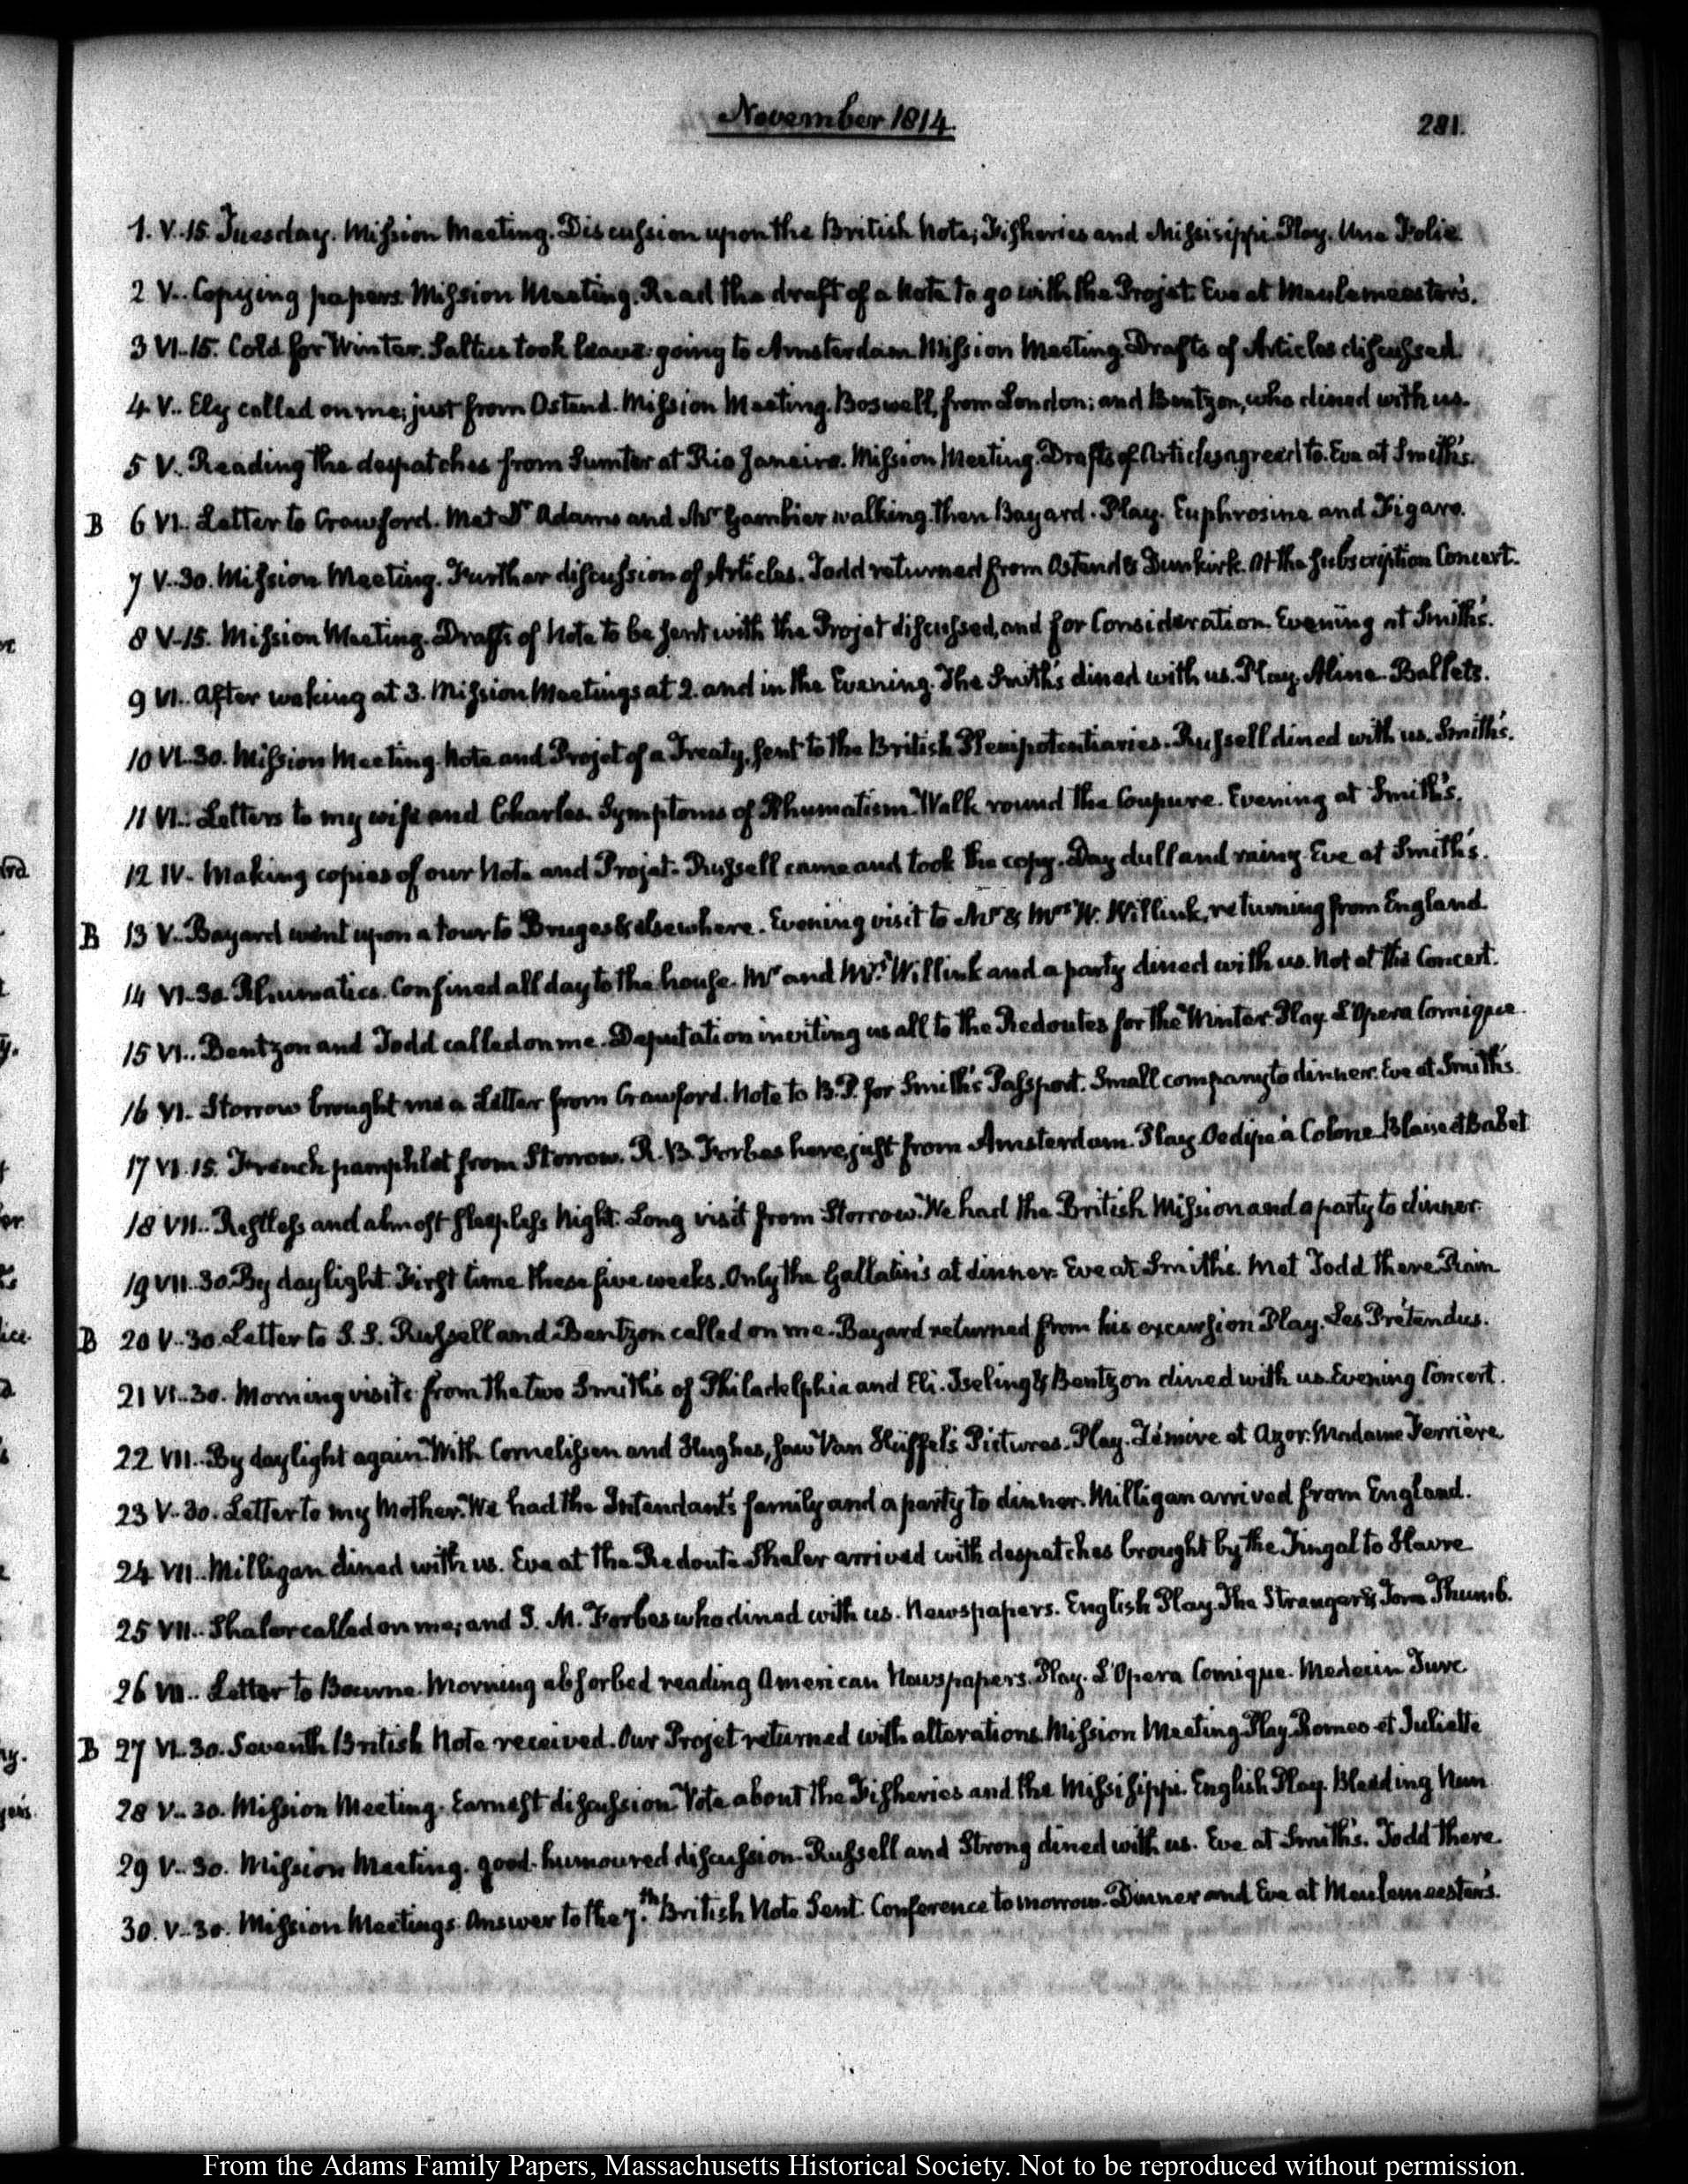 November 1814.
281.
1. V.15. Tuesday. Mission Meeting. Discussion upon the British Note; Fisheries and Missisippi. Play. Une Folie
2 V.. Copying papers. Mission Meeting. Read the draft of a Note to go with the Projet. Eve at Meulemeester's.
3 VI.15. Cold for Winter. Saltus took leave: going to Amsterdam. Mission Meeting. Drafts of Articles discussed.
4. V.. Ely called on me; just from Ostend. Mission Meeting. Boswell, from London; and Bentzon, who dined with us.
5 V. Reading the despatches from Sumter at Rio Janeiro. Mission Meeting. Drafts of Articles agreed to. Eve at Smith's.
B 6 VI.. Letter to Crawford. Met Dr Adams and Mr Gambier walking. Then Bayard. Play. Euphrosine and Figaro.
7 V.30. Mission Meeting. Further discussion of Articles. Todd returned from Ostend & Dunkirk. At the Subscription Concert.
8 V.15. Mission Meeting. Drafts of Note to be sent with the Projet discussed, and for Consideration. Evening at Smith's.
9 VI.. After waking at 3. Mission Meetings at 2. and in the Evening. The Smith's dined with us. Play. Aline. Ballets.
10 VI.30. Mission Meeting. Note and Projet of a Treaty, sent to the British Plenipotentiaries. Russell dined with us. Smith's.
11 VI.. Letters to my wife and Charles. Symptoms of Rhumatism. Walk round the Coupure. Evening at Smith's.
12 IV. Making copies of our Note and Projet. Russell came and took the copy. Day dull and rainy. Eve at Smith's.
B 13 V.. Bayard went upon a tour to Bruges & elsewhere. Evening visit to Mr & Mrs W. Willink, returning from England.
14 VI.30. Rhumatics. Confined all day to the house. Mr and Mrs Willink and a party dined with us. Not at the Concert.
15 VI.. Bentzon and Todd called on me. Deputation inviting us all to the Redoutes for the Winter. Play. L'Opera Comique.
16 VI. Storrow brought me a Letter from Crawford. Note to B.P. for Smith's Passport. Small company to dinner. Eve at Smith's.
17 VI.15. French pamphlet from Storrow. R. B. Forbes here, just from Amsterdam. Play Oedipe à Colone. Blaise et Babet
18 VII.. Restless and almost sleepless Night. Long visit from Storrow. We had the British Mission and a party to dinner.
19 VII.30. By daylight. First time these five weeks. Only the Gallatin's at dinner. Eve at Smith's. Met Todd there. Rain
B 20 V.30. Letter to S.S. Russell and Bentzon called on me. Bayard returned from his excursion. Play. Les Prétendus.
21 VI.30. Morning visits from the two Smith's of Philadelphia and Eli. Iseling & Bentzon dined with us. Evening Concert.
22 VII.. By daylight again. With Cornelissen and Hughes, saw Van Hüffel's Pictures. Play. Zémire et Azor. Madame Ferrière.
23 V.30. Letter to my Mother. We had the Intendant's family and a party to dinner. Milligan arrived from England.
24 VII. Milligan dined with us. Eve at the Redoute. Shaler arrived with despatches brought by the Fingal to Havre
25 VII.. Shaler called on me; and J. M. Forbes who dined with us. Newspapers. English Play. The Stranger & Tom Thumb.
26 VII.. Letter to Bourne. Morning absorbed reading American Newspapers. Play. L'Opera Comique. Medecin Turc
B 27 VI.30. Seventh British Note received. Our Projet returned with alterations. Mission Meeting. Play Romeo et Juliette
28 V..30. Mission Meeting. Earnest discussion. Vote about the Fisheries and the Missisippi. English Play. Bleeding Nun
29 V..30. Mission Meeting. good-humoured discussion. Russell and Strong dined with us. Eve at Smith's. Todd there.
30. V..30. Mission Meetings. Answer to the 7th. British Note Sent. Conference tomorrow. Dinner and Eve at Meulemeester's.
From the Adams Family Papers, Massachusetts Historical Society. Not to be reproduced without permission.